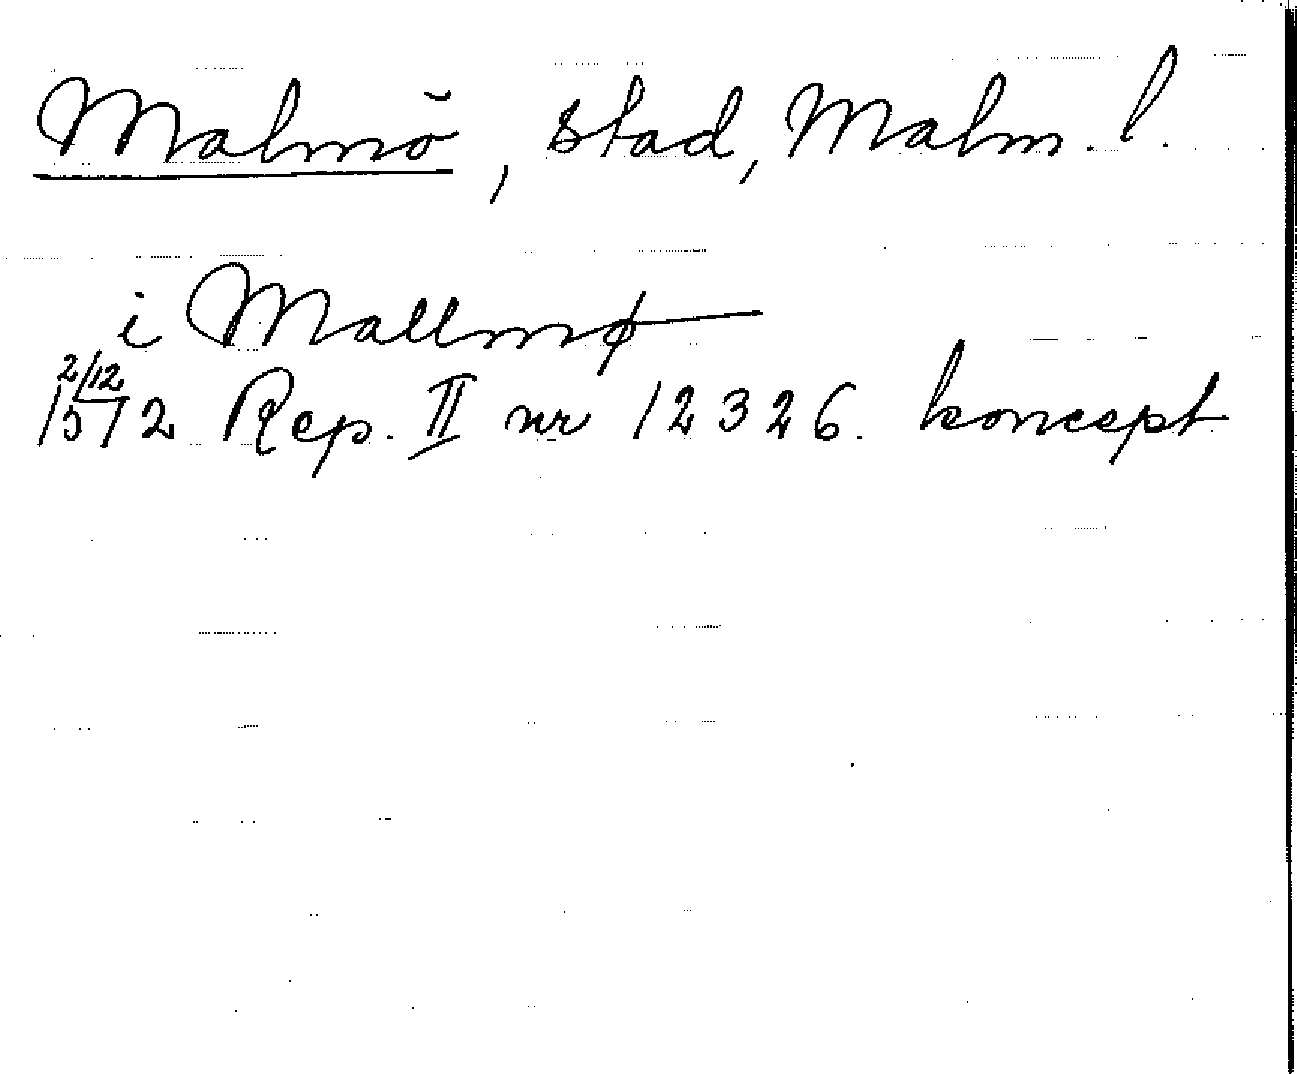 Malmö, stad, Malm. l.
i Mallmø
2/12
1572 Rep. II nr 12326. koncept